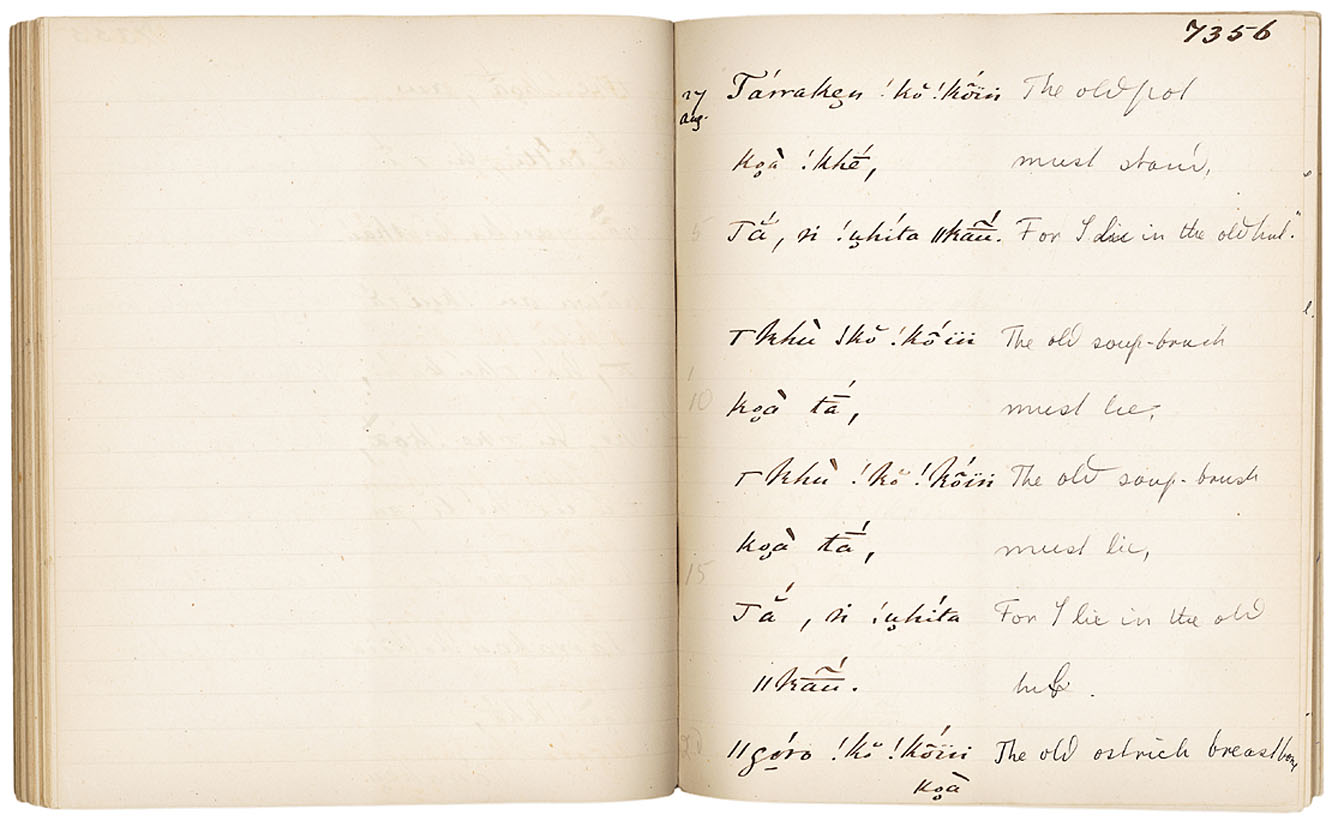 7356
27 Aug. Tárraken !kŏ!kṍïn The old pot
ko̥à !khḗ, must stand,
5 Tắ, ṅ !u̥híta ǁkā̃́ū. For I lie in the old hut."
Ƭkhù !kŏ!kṍïn The old soup-brush
10 ko̥à tā́, must lie,
Ƭkhù !kŏ!kṍïn The old soup-brush
ko̥à tā́, must lie,
15 Tắ, ṅ !u̥híta For I lie in the old
ǁkā̃́ū. hut.
20 ǁgóro !kŏ!kṍïn The old ostrich breastbone
ko̥à